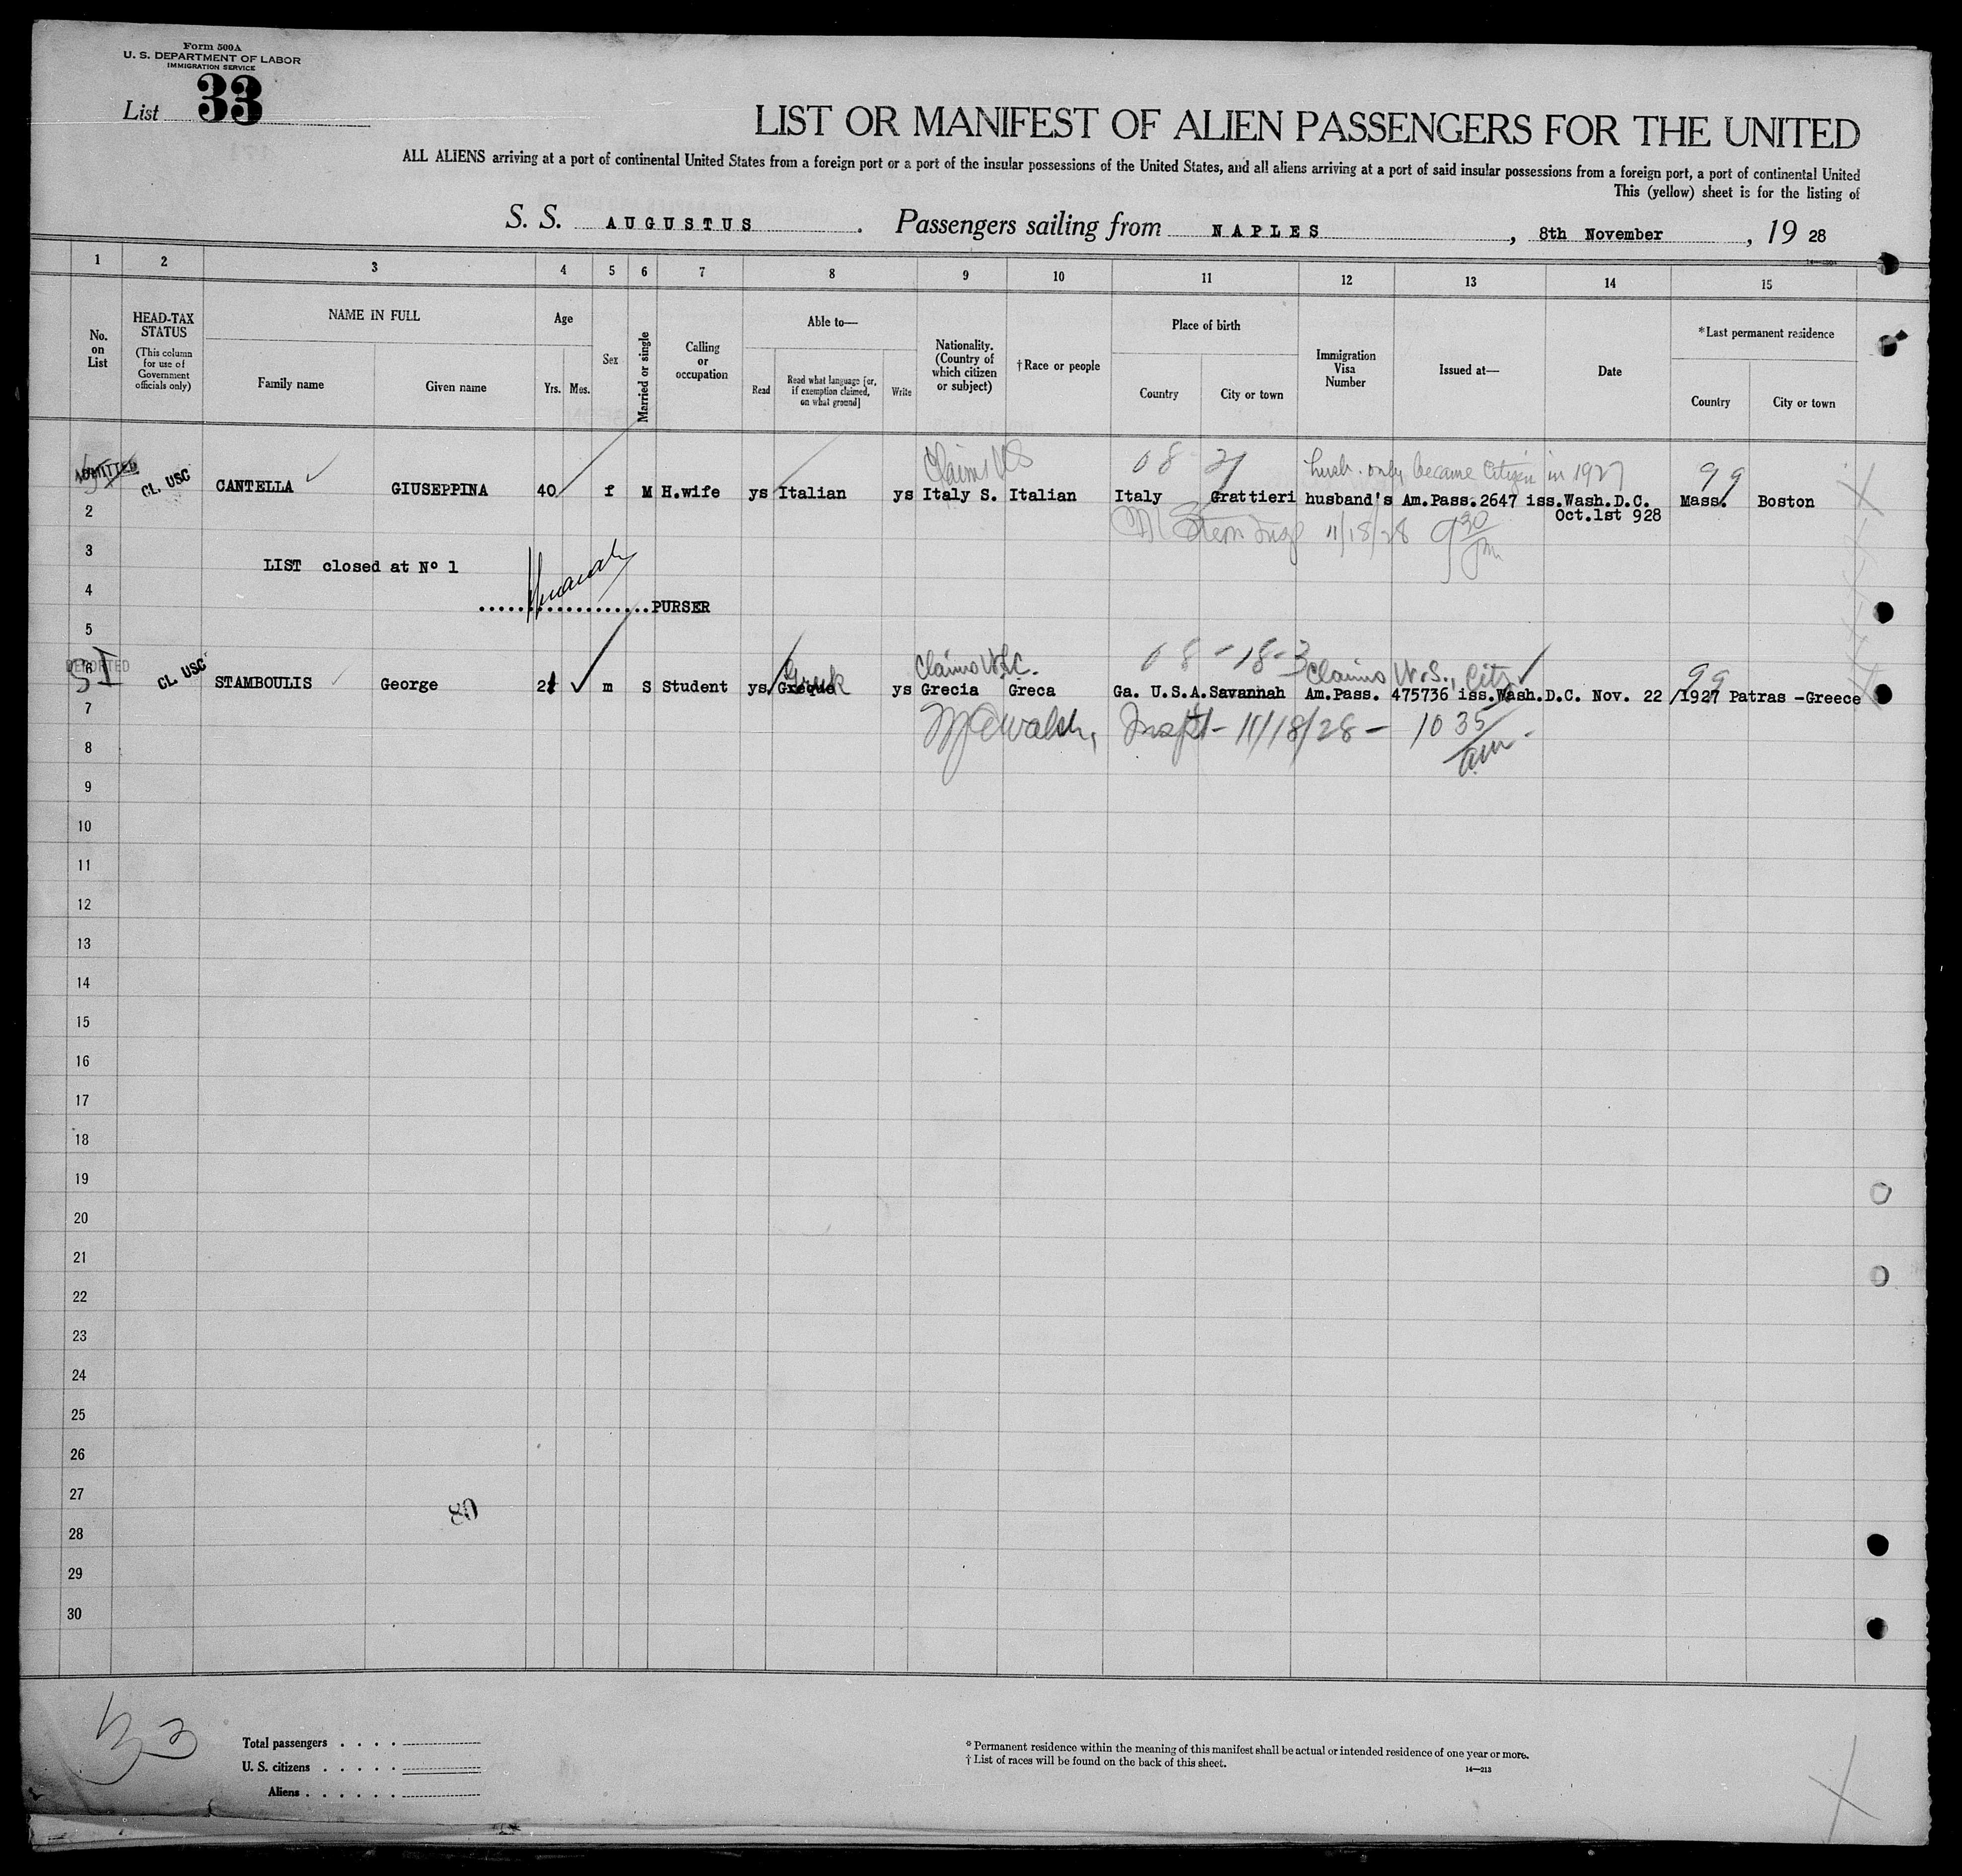 Form 500A
U. S. DEPARTMENT OF LABOR
IMMIGRATION SERVICE
List 33
LIST OR MANIFEST OF ALIEN PASSENGERS FOR THE UNITED
ALL ALIENS arriving at a port of continental United States from a foreign port or a port of the insular possessions of the United States, and all aliens arriving at a port of said insular possessions from a foreign port, a port of continental United
This (yellow) sheet is for the listing of
S. S. AUGUSTUS. Passengers sailing from NAPLES, 8th November, 19 28
1 2 3 4 5 6 7 8 9 10 11 12 13 14 15
No. on List
HEAD-TAX STATUS
(This column for use of Government officials only)
NAME IN FULL
Family name
Given name
Age
Yrs. Mos.
Sex
Married or single
Calling or occupation
Able to—
Read
Read what language [or, if exemption claimed, on what ground]
Write
Nationality. (Country of which citizen or subject)
†Race or people
Place of birth
Country
City or town
Immigration Visa Number
Issued at—
Date
*Last permanent residence
Country
City or town
Claims US 08 husb. only became Citizen in 1927 99
ADMITTED CL. USC CANTELLA GIUSEPPINA 40 f M H.wife ys Italian ys Italy S. Italian Italy Grattieri husband's Am.Pass.2647 iss.Wash.D.C. Mass. Boston
Oct.1st 928
2
Stern Insp 11/18/28 9 30
3
LIST closed at Nº 1
4
PURSER
5
Claims U.S.C. 08-18-3 Claims U.S. Citz 99
DEPORTED SI CL. USC STAMBOULIS George 2 m S Student ys Greque Greek ys Grecia Greca Ga. U.S.A. Savannah Am.Pass. 475736 iss.Wash.D.C. Nov. 22 /1927 Patras -Greece
7
Walsh, Inspt - 11/18/28 - 10 35 am -
8
9
10
11
12
13
14
15
16
17
18
19
20
21
22
23
24
25
26
27
80
28
29
30
33
Total passengers . . . .
U. S. citizens . . . . .
Aliens . . . . . .
* Permanent residence within the meaning of this manifest shall be actual or intended residence of one year or more.
† List of races will be found on the back of this sheet.
14—213